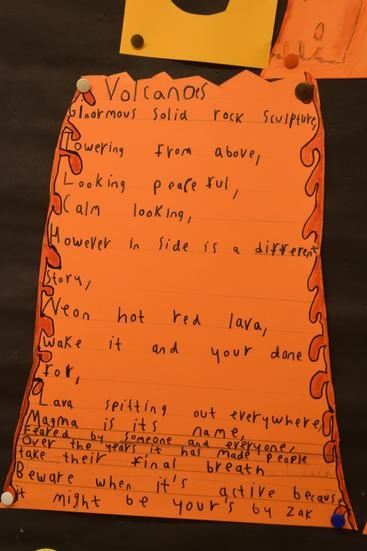 Volcanoes
Enormous solid rock sculpture,
Towering from above,
Looking peaceful,
Calm looking,
However in side is a different
story,
Neon hot red lava,
wake it and your done
for,
Lava spitting out everywhere,
Magma is its name,
Feared by someone and everyone,
Over the years it has made people
take their final breath
Beware when it's active because
it might be your's by Zak